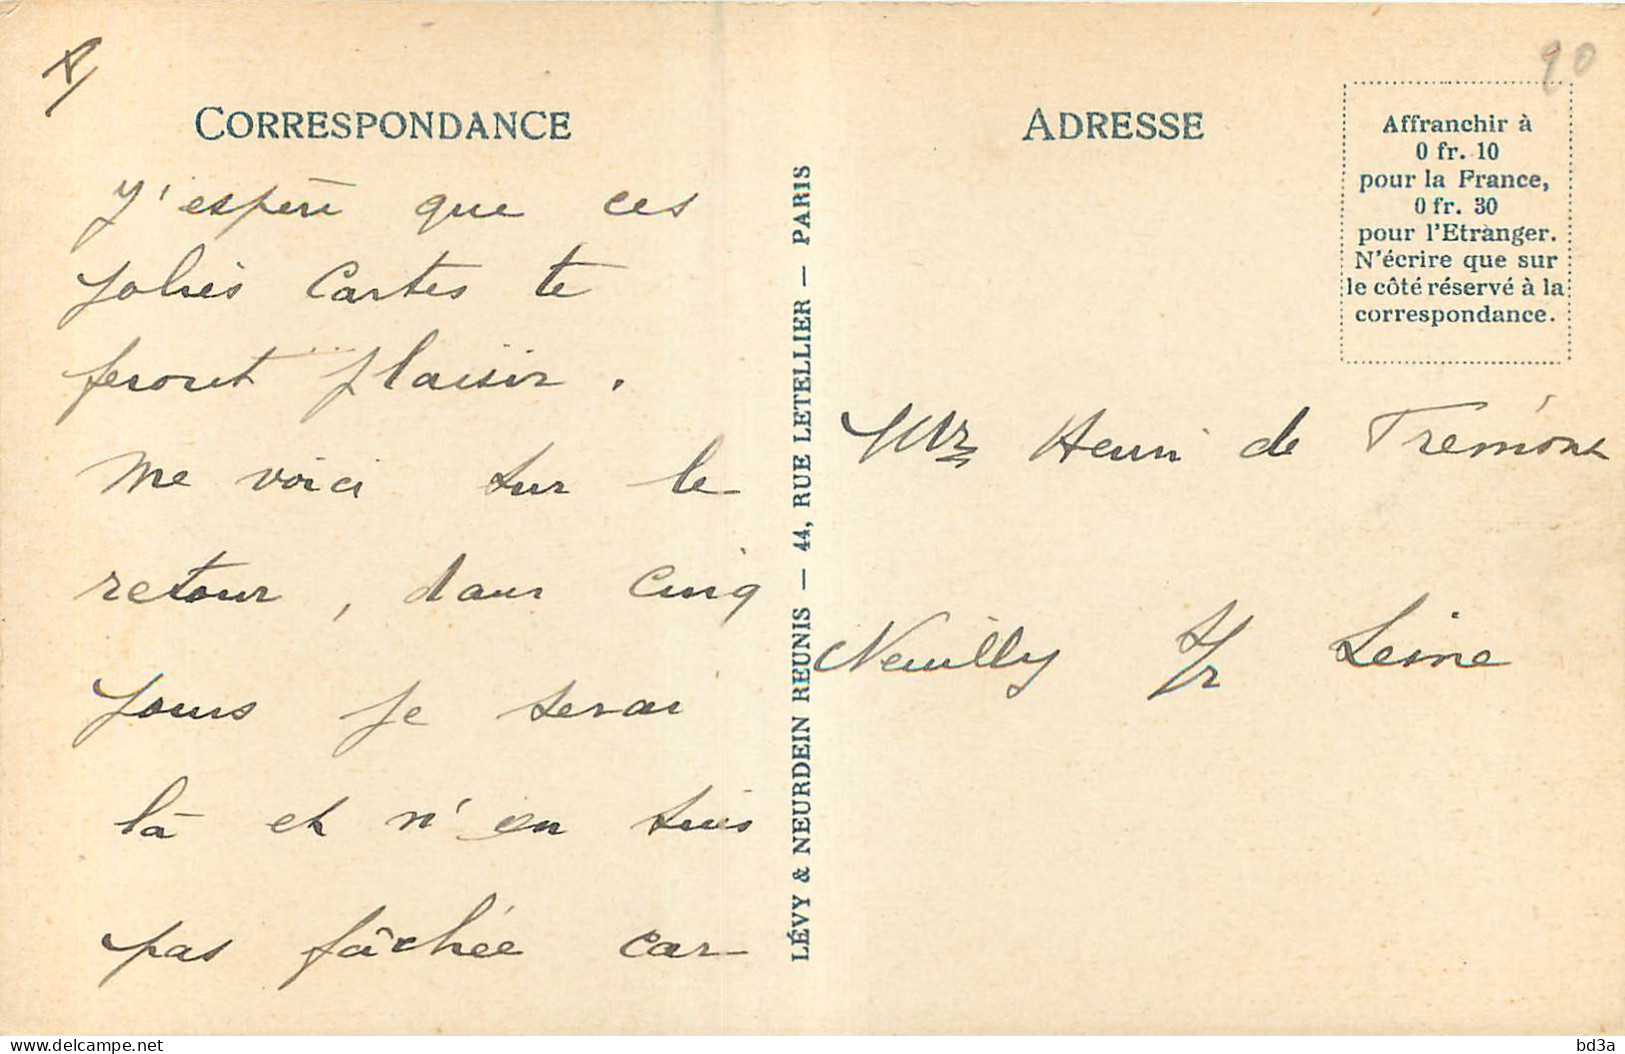 CORRESPONDANCE
J'espère que ces
jolies cartes te
feront plaisir.
Me voici sur le
retour, dans cinq
jours je serai
là et n'en suis
pas fâchée car
LÉVY & NEURDEIN RÉUNIS — 44, RUE LETELLIER — PARIS
ADRESSE
90
Affranchir à
0 fr. 10
pour la France,
0 fr. 30
pour l'Etranger.
N'écrire que sur
le côté réservé à la
correspondance.
Henri de Tremont
Neuilly s/r Seine
delcampe.net
bd3a